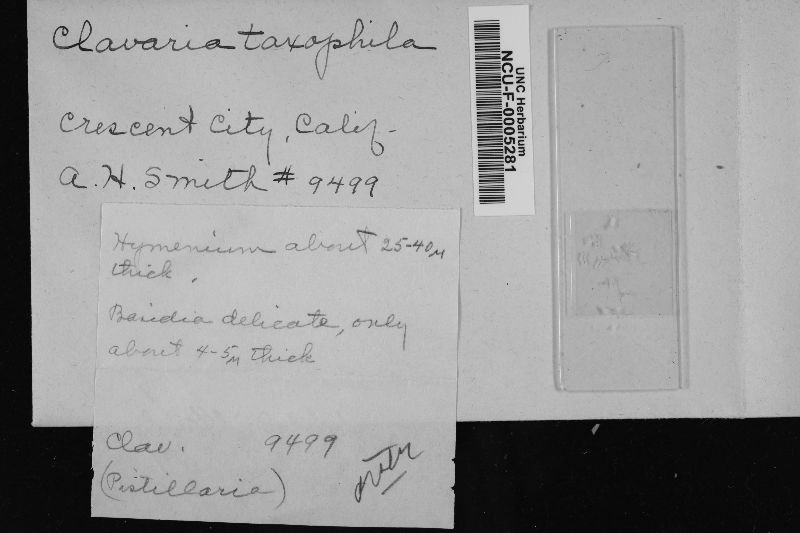 Clavaria taxophila
Crescent City, Calif-
A. H. Smith # 9499
UNC Herbarium
NCU-F-0005281
Hymenium about 25-40μ
thick.
Basidia delicate, only
about 4-5μ thick
Clav. 9499
(Pistillaria)
note